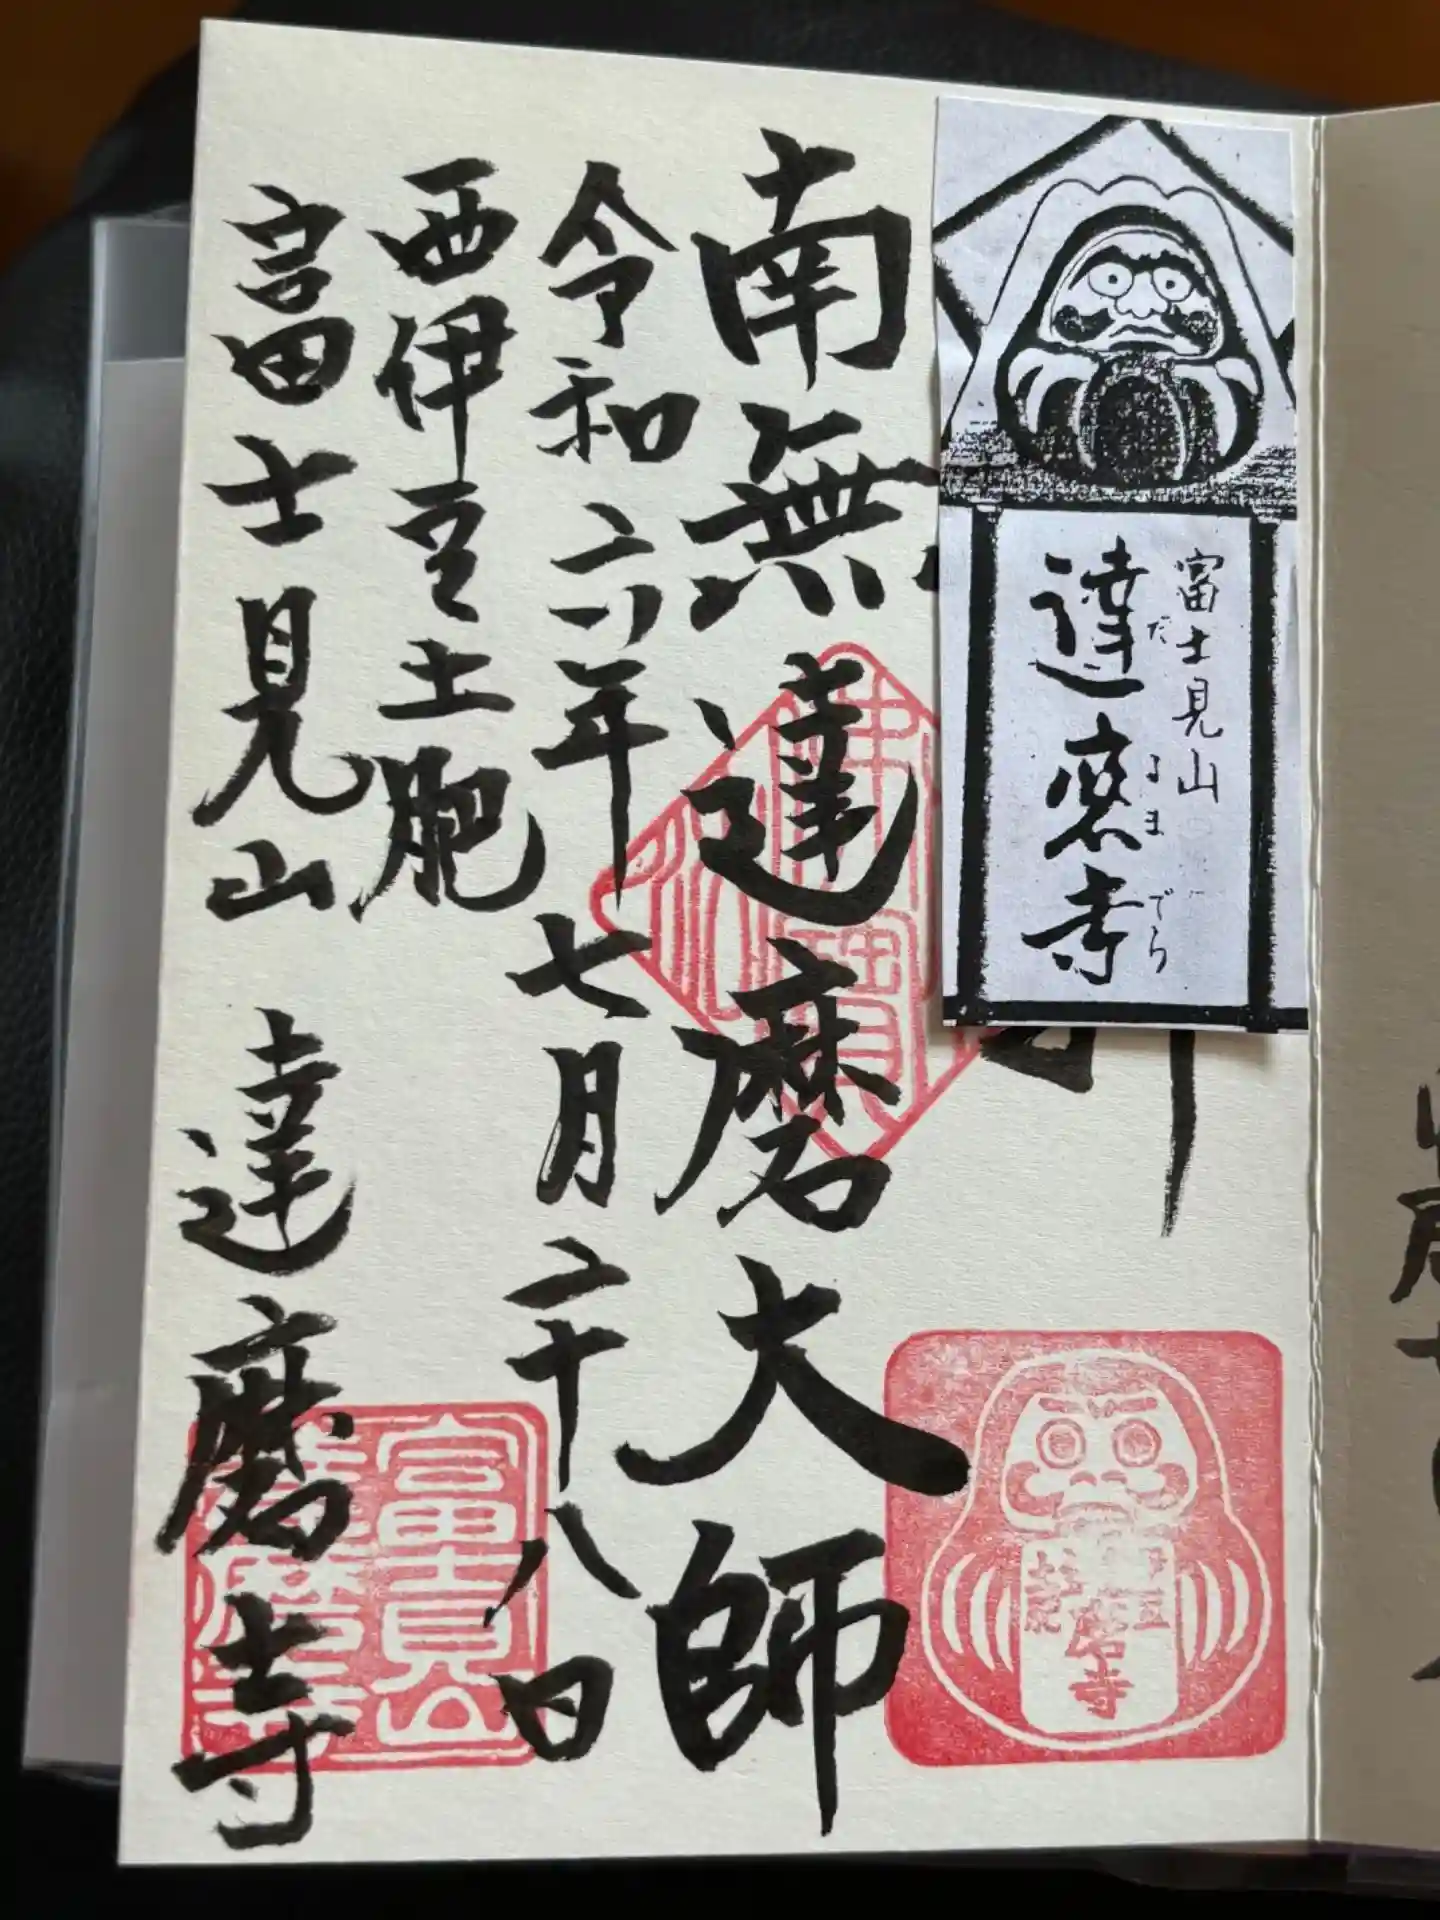 富士見山
達磨寺
だ
るま
でら
南無達磨大師
令和六年七月二十八日
西伊豆土肥
富士見山 達磨寺
富士見山
達磨寺